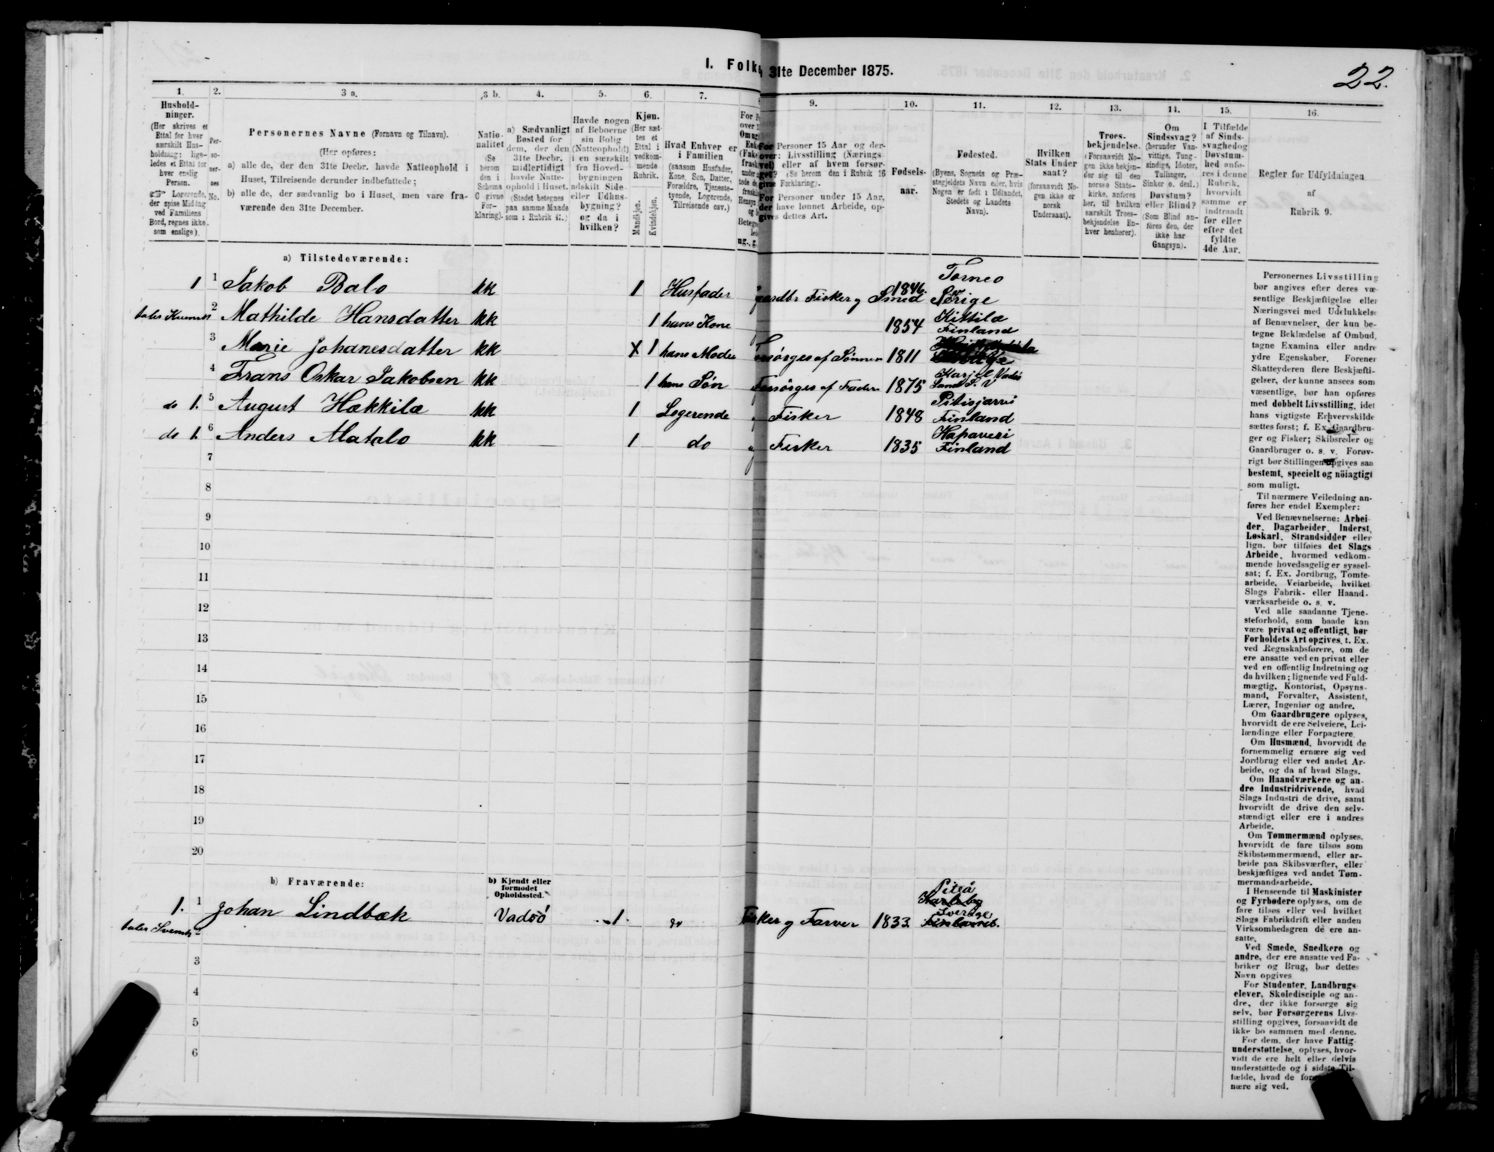 22.
I. Folk
31te December 1875.
1.
2.
3 a.
3 b.
4.
5.
6.
7.
9.
10.
11.
12.
13.
14.
15.
16.
Hushold-
ninger.
(Her skrives et
Ettal for hver
særskilt Hus-
holdning; lige-
ledes et Ettal for
hver enslig
Person.
Logerende,
der spise Middag
ved Familiens
Bord, regnes ikke
som enslige).
Per-
so-
ner-
nes
No.
Personernes Navne (Fornavn og Tilnavn).
(Her opføres:
a) alle de, der den 31te Decbr. havde Natteophold i
Huset, Tilreisende derunder indbefattede;
b) alle de, der sædvanlig bo i Huset, men vare fra-
værende den 31te December.
Natio-
nalitet
(Se
herom
den i
Schema
G givne
For-
klaring).
a) Sædvanligt
Bosted for
dem, der den
31te Decbr.
midlertidigt
havde Natte-
ophold i Huset.
(Stedet betegnes
paa samme Maade
som i Rubrik 11.)
Havde nogen
af Beboerne
sin Bolig
(Natteophold)
i en særskilt
fra Hoved-
bygningen
adskilt Side-
eller Udhus-
bygning?
og da i
hvilken?
Kjøn.
(Her sæt-
tes et
Ettal i
vedkom-
mende
Rubrik.
Mandkjøn.
Kvindekjøn.
Hvad Enhver er
i Familien
(saasom Husfader,
Kone, Søn, Datter,
Forældre, Tjeneste-
tyende, Logerende,
Tilreisende osv.)
Personer 15 Aar og der-
over: Livsstilling (Nærings-
vei) eller af hvem forsør-
get? (Se herom den i Rubrik 16
givne Forklaring).
For Personer under 15 Aar,
der have lønnet Arbeide, op-
gives dettes Art.
Fødsels-
aar.
Fødested.
(Byens, Sognets og Præ-
stegjeldets Navn eller, hvis
Nogen er født i Udlandet,
Stedets og Landets
Navn).
Hvilken
Stats Under-
saat?
(forsaavidt No-
gen ikke er
norsk
Undersaat).
Troes-
bekjendelse.
(Forsaavidt No-
gen ikke bekjen-
der sig til den
norske Stats-
kirke, anføres
her, til hvilken
særskilt Troes-
bekjendelse En-
hver henhører).
Om
Sindssvag?
(herunder Van-
vittige, Tung-
sindige, Idioter,
Tullinger,
Sinker o. desl.)
Døvstum?
eller Blind?
(Som Blind an-
føres den, der
ikke har
Gangsyn).
I Tilfælde
af Sinds-
svaghed og
Døvstum-
hed anfø-
res i denne
Rubrik,
hvorvidt
samme er
indtraadt
før eller
efter det
fyldte
4de Aar.
Regler for Udfyldningen
af
Rubrik 9.
a) Tilstedeværende:
1 1 Jakob Balo kk 1 Husfader Gaardbr Fisker og Smed 1846 Torneo Sverige
taler Kvensk 2 Mathilde Hansdatter kk 1 hans Kone 1854 Kittilä Finland
3 Marie Johanesdatter kk X 1 hans Moder Forsørges af Sønnen 1811
4 Frans Oskar Jakobsen kk 1 hans Søn Forsørges af Fader 1875 Vadsö
do 1. 5 August Hækkilæ kk 1 Logerende Fisker 1848 Finland
do 1. 6 Anders Matalo kk 1 do Fisker 1835 Hapavesi Finland
7
8
9
10
11
12
13
14
15
16
17
18
19
20
b) Fraværende:
b) Kjendt eller
formodet
Opholdssted.
1. 1 Johan Lindbæk Vadsö 1. Fisker og Farver 1833. Piteå Sverige
2
3
4
5
6
Personernes Livsstilling
bør angives efter deres væ-
sentlige Beskjæftigelse eller
Næringsvei med Udelukkelse
af Benævnelser, der kun be-
tegne Beklædelse af Ombud,
tagne Examina eller andre
ydre Egenskaber. Forener
Skatteyderen flere Beskjæfti-
gelser, der kunne ansees som
væsentlige, bør han opføres
med dobbelt Livsstilling, idet
hans vigtigste Erhvervskilde
sættes først; f. Ex. Gaardbru-
ger og Fisker; Skibsreder og
Gaardbruger o. s. v. Forøv-
rigt bør Stillingen opgives saa
bestemt, specielt og nöiagtigt
som muligt.
Til nærmere Veiledning an-
føres her endel Exempler:
Ved Benævnelserne: Arbei-
der, Dagarbeider, Inderst,
Løskarl, Strandsidder eller
lign. bør tilføies det Slags
Arbeide, hvormed vedkom-
mende hovedsagelig er syssel-
sat; f. Ex. Jordbrug, Tomte-
arbeide, Veiarbeide, hvilket
Slags Fabrik- eller Haand-
værksarbeide o. s. v.
Ved alle saadanne Tjene-
steforhold, som baade kan
være privat og offentligt, bør
Forholdets Art opgives, t. Ex.
ved Regnskabsførere, om de
ere ansatte ved en privat eller
ved en offentlig Indretning og
da hvilken; lignende ved Fuld-
mægtig, Kontorist, Opsyns-
mand, Forvalter, Assistent,
Lærer, Ingeniør og andre.
Om Gaardbrugere oplyses,
hvorvidt de ere Selveiere, Lei-
lændinge eller Forpagtere.
Om Husmænd, hvorvidt de
fornemmelig ernære sig ved
Jordbrug eller ved andet Ar-
beide, og da af hvad Slags.
Om Haandværkere og an-
dre Industridrivende, hvad
Slags Industri de drive, samt
hvorvidt de drive den selv-
stændigt eller ere i andres
Arbeide.
Om Tømmermænd oplyses,
hvorvidt de fare tilsøs som
Skibstømmermænd, eller ar-
beide paa Skibsværfter, eller
beskjæftiges ved andet Tøm-
mermandsarbeide.
I Henseende til Maskinister
og Fyrbødere oplyses, om de
fare tilsøs eller ved hvilket
Slags Fabrikdrift eller anden
Virksomhedsgren de ere an-
satte.
Ved Smede, Snedkere og
andre, der ere ansatte ved Fa-
briker og Brug, bør dettes
Navn opgives
For Studenter, Landbrugs-
elever, Skoledisciple og an-
dre, der ikke forsørge sig
selv, bør Forsørgerens Livs-
stilling opgives, forsaavidt de
ikke bo sammen med denne.
For dem, der have Fattig-
understøttelse, oplyses, hvor-
vidt de ere helt eller delvis
understøttede og i sidste Til-
fælde, hvad de
nære sig ved.